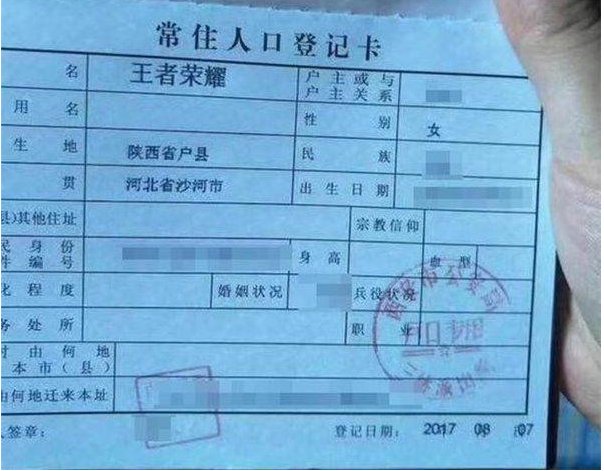 常住人口登记卡
名 王者荣耀 户主或与
户主关系
用名 性别 女
生地 陕西省户县 民族
贯 河北省沙河市 出生日期
县)其他住址 宗教信仰
民身份
件编号 身高 血型
化程度 婚姻状况 兵役状况
务处所 职业
时由何地
本市(县)
由何地迁来本址
人签章: 登记日期: 2017 08 07
户口专用